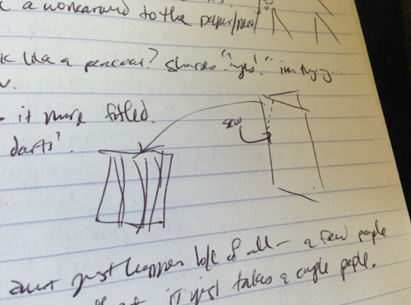 a workaround to the paper/
like a peacoat? shares "ugh!" I'm trying...
it more fitted.
darts'.
sew
just happen b/c of all - a few people
it just takes a couple people.